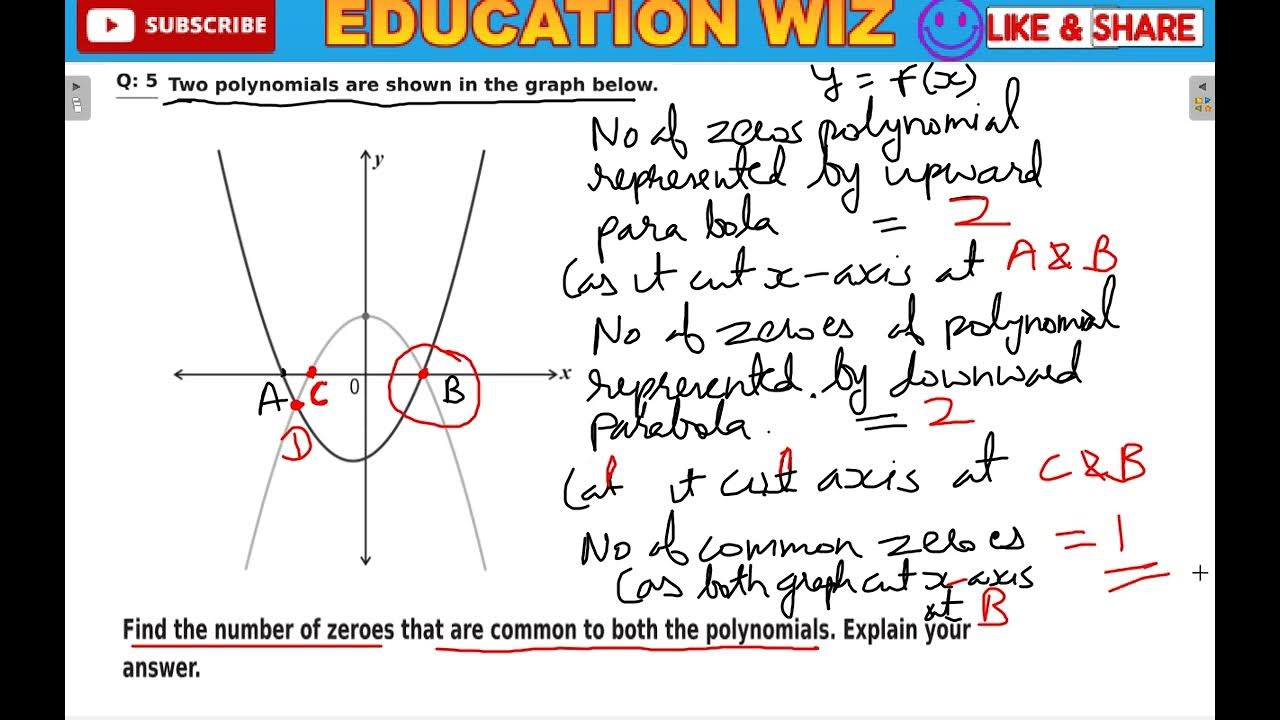 SUBSCRIBE
EDUCATION WIZ
LIKE & SHARE
Q: 5 Two polynomials are shown in the graph below.
y = f(x)
No of zeros polynomial
represented by upward
para bola = 2
(as it cut x-axis at A & B
No of zeroes of polynomial
represented by downward
Parabola. = 2
(at it cut axis at C & B
No of common zeroes = 1
(as both graph cut x-axis
at B
y
x
0
A
C
B
D
Find the number of zeroes that are common to both the polynomials. Explain your
answer.